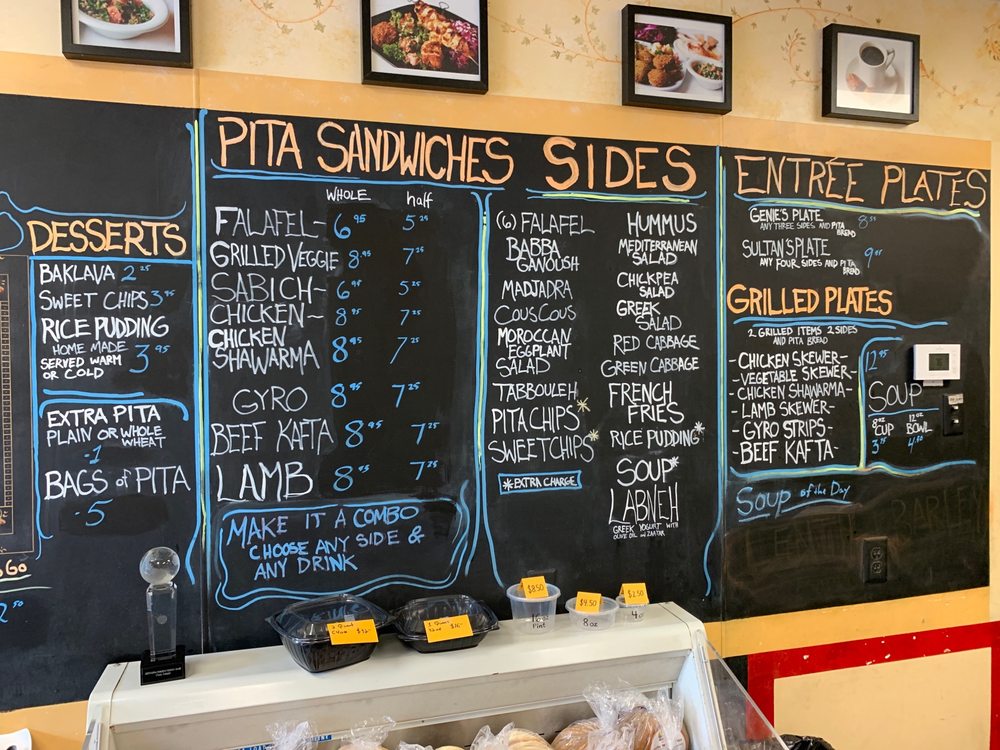 DESSERTS
BAKLAVA 2.25
SWEET CHIPS 3.95
RICE PUDDING
HOME MADE
SERVED WARM
OR COLD
3.95
EXTRA PITA
PLAIN OR WHOLE
WHEAT
-1
BAGS of PITA
-5
Go
PITA SANDWICHES
WHOLE half
FALAFEL- 6.95 5.25
GRILLED VEGGIE 8.95 7.25
SABICH- 6.95 5.25
CHICKEN- 8.95 7.25
CHICKEN
SHAWARMA 8.95 7.25
GYRO 8.95 7.25
BEEF KAFTA 8.95 7.25
LAMB 8.95 7.25
MAKE IT A COMBO
CHOOSE ANY SIDE &
ANY DRINK
SIDES
(6) FALAFEL
BABBA
GANOUSH
MADJADRA
COUSCOUS
MOROCCAN
EGGPLANT
SALAD
TABBOULEH
PITA CHIPS*
SWEET CHIPS*
*EXTRA CHARGE
HUMMUS
MEDITERRANEAN
SALAD
CHICKPEA
SALAD
GREEK
SALAD
RED CABBAGE
GREEN CABBAGE
FRENCH
FRIES
RICE PUDDING*
SOUP*
LABNEH
GREEK YOGURT WITH
OLIVE OIL and ZAATAR
ENTRÉE PLATES
GENIE'S PLATE
ANY THREE SIDES AND PITA
BREAD
SULTAN'S PLATE
ANY FOUR SIDES AND PITA
BREAD
GRILLED PLATES
2 GRILLED ITEMS 2 SIDES
AND PITA BREAD
-CHICKEN SKEWER-
-VEGETABLE SKEWER-
-CHICKEN SHAWARMA-
-LAMB SKEWER-
-GYRO STRIPS-
-BEEF KAFTA-
12.95
SOUP
8oz 12oz
CUP BOWL
Soup of the Day
$8.50
Pint
$4.50
8 oz
$2.50